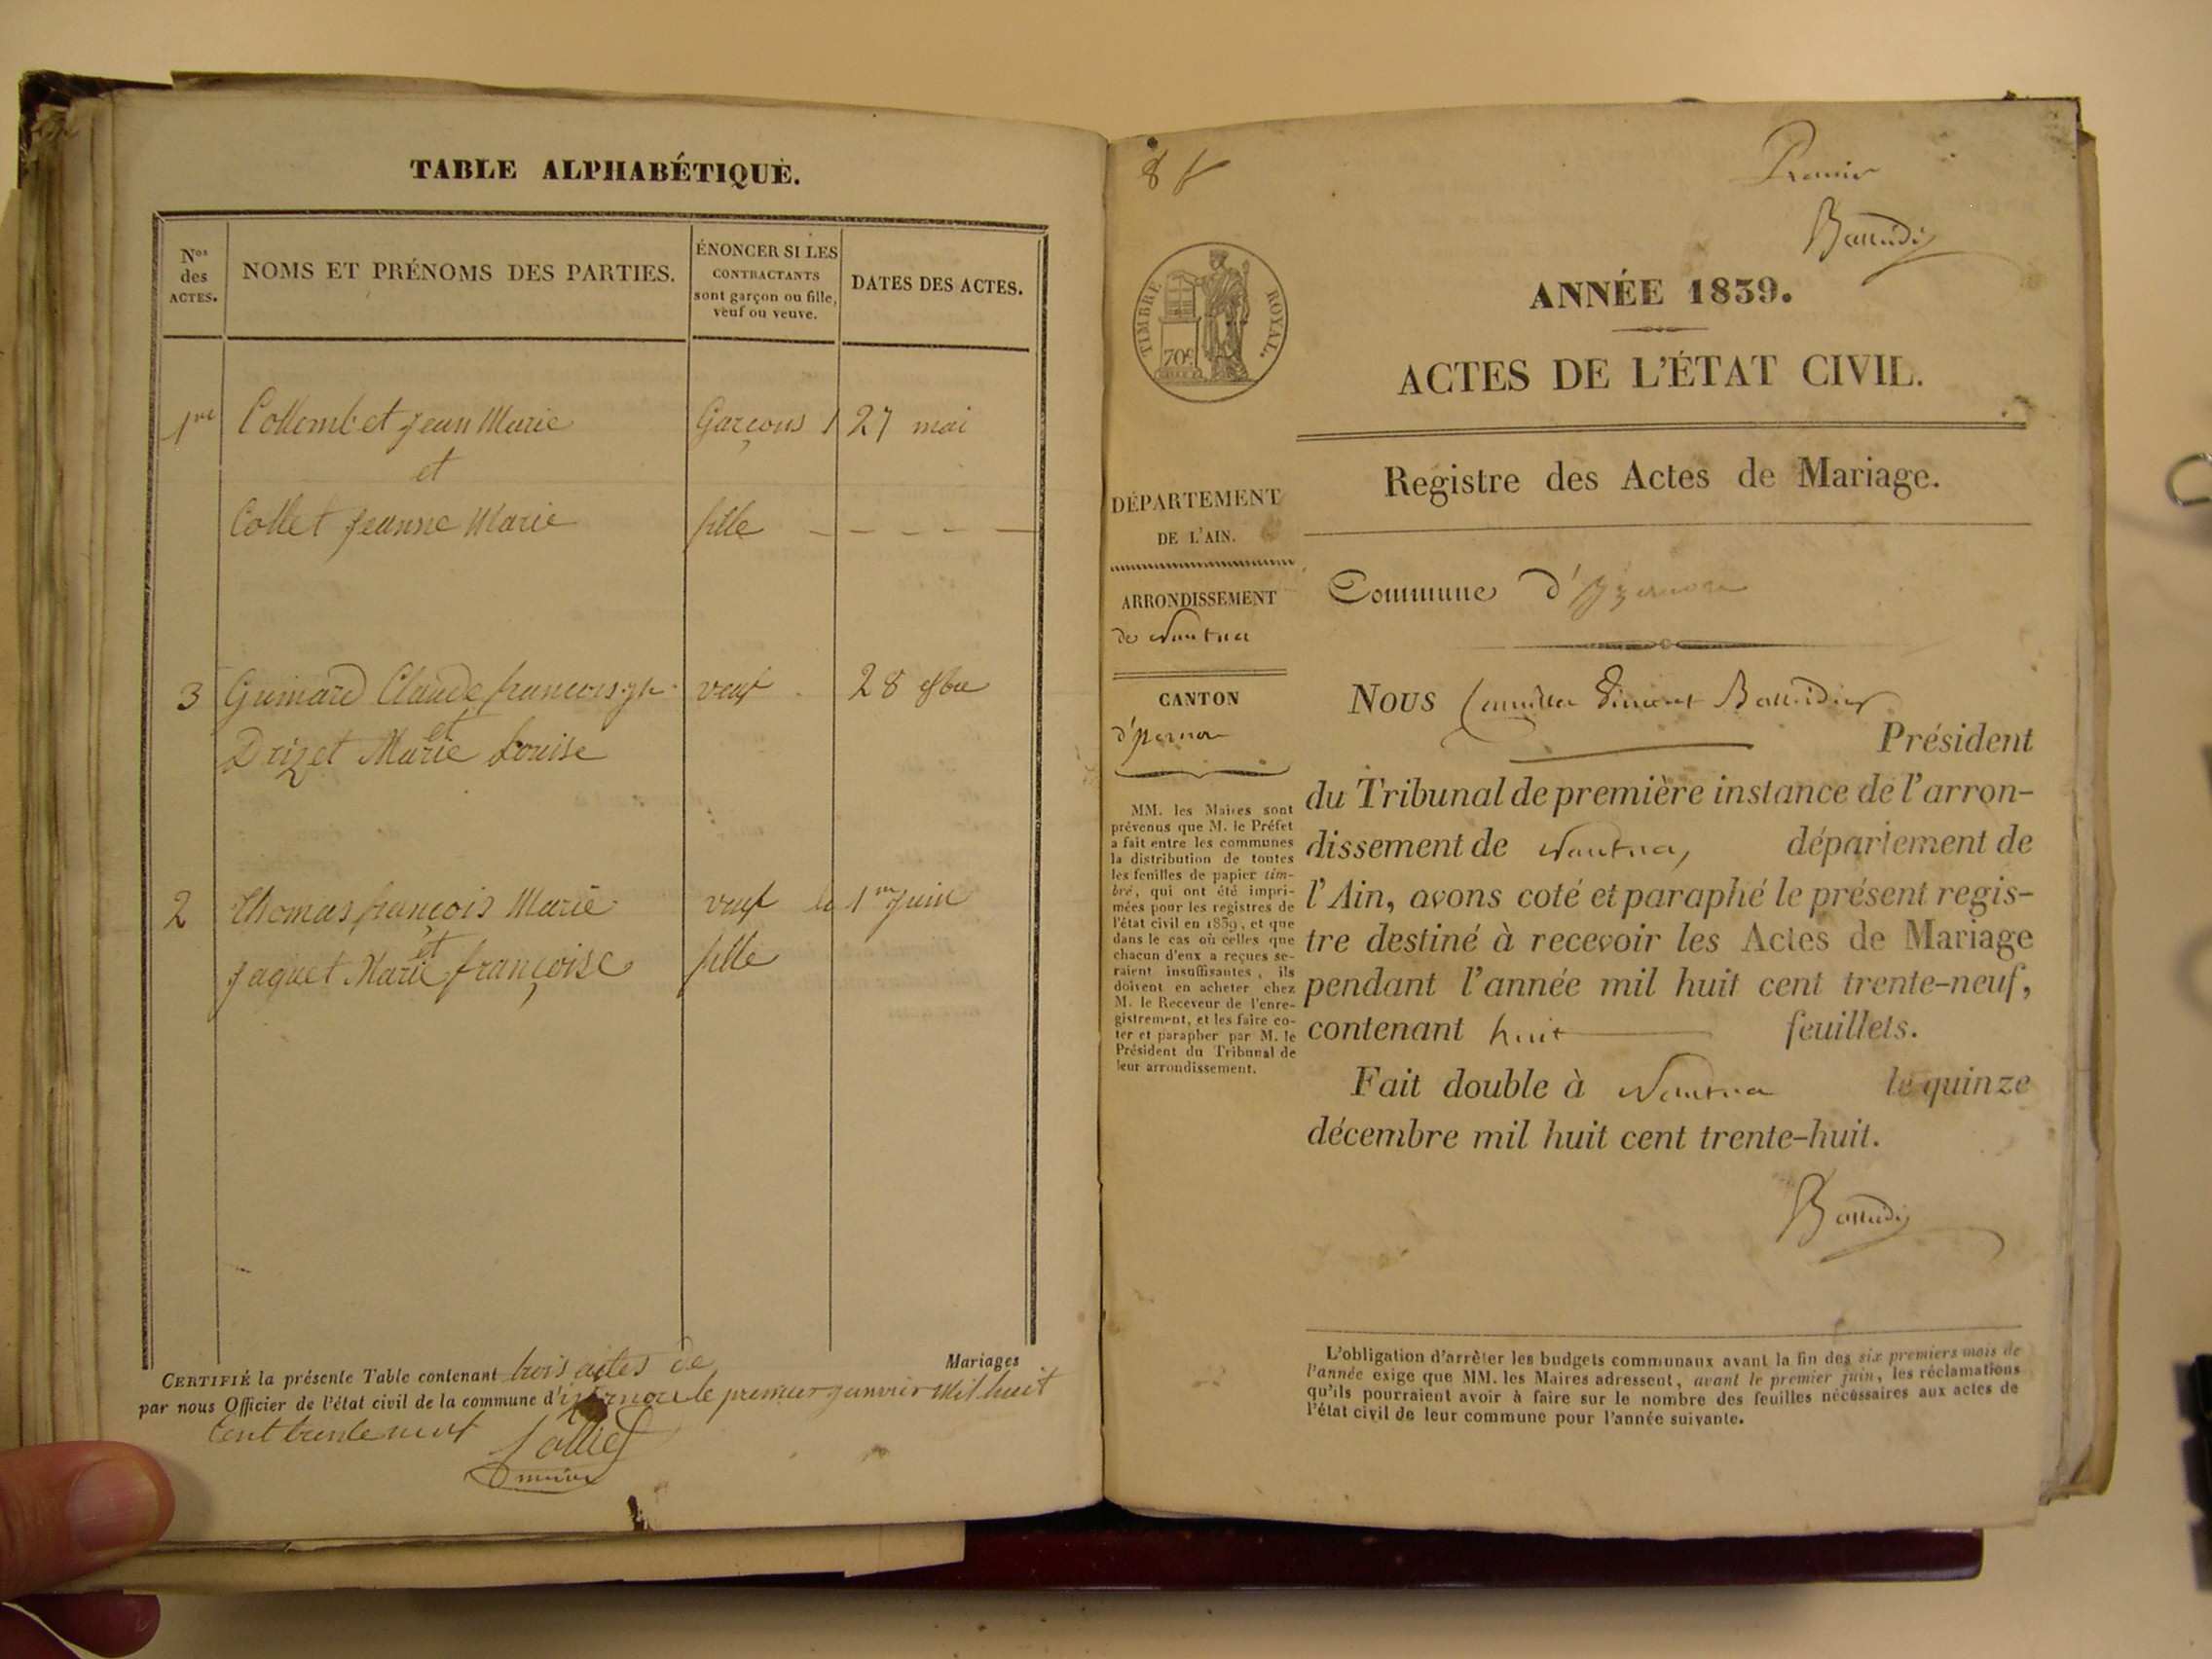 TABLE ALPHABÉTIQUE.
Nos des ACTES.
NOMS ET PRÉNOMS DES PARTIES.
ÉNONCER SI LES
CONTRACTANTS
sont garçon ou fille,
veuf ou veuve.
DATES DES ACTES.
1re Collombet Jean Marie Garçons 27 mai
et
Collet Jeanne Marie fille
3 Claude françois veuf 28
et
Drizet Marie Louise
2 Thomas françois Marie veuf le 1er Juin
et
Jaquet Marie françoise fille
Mariages
CERTIFIÉ la présente Table contenant trois actes de
par nous Officier de l'état civil de la commune d'izernore le premier janvier Mil huit
Cent trente neuf
maire
8 f
Premier
TIMBRE ROYAL.
70c
ANNÉE 1839.
ACTES DE L'ÉTAT CIVIL.
Registre des Actes de Mariage.
DÉPARTEMENT
DE L'AIN.
ARRONDISSEMENT
de Nantua
CANTON
d'
MM. les Maires sont
prévenus que M. le Préfet
a fait entre les communes
la distribution de toutes
les feuilles de papier tim-
bré, qui ont été impri-
mées pour les registres de
l'état civil en 1839, et que
dans le cas où celles que
chacun d'eux a reçues se-
raient insuffisantes, ils
doivent en acheter chez
M. le Receveur de l'enre-
gistrement, et les faire co-
ter et parapher par M. le
Président du Tribunal de
leur arrondissement.
Commune d'Izernore
Nous
Président
du Tribunal de première instance de l'arron-
dissement de Nantua, département de
l'Ain, avons coté et paraphé le présent regis-
tre destiné à recevoir les Actes de Mariage
pendant l'année mil huit cent trente-neuf,
contenant huit feuillets.
Fait double à Nantua le quinze
décembre mil huit cent trente-huit.
L'obligation d'arrêter les budgets communaux avant la fin des six premiers mois de
l'année exige que MM. les Maires adressent, avant le premier juin, les réclamations
qu'ils pourraient avoir à faire sur le nombre des feuilles nécessaires aux actes de
l'état civil de leur commune pour l'année suivante.